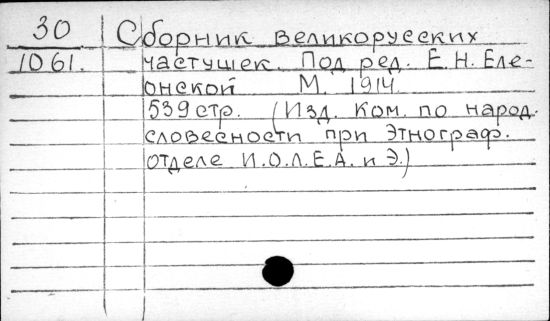 30 Сборник великорусских
1061. частушек. Под ред. Е.Н. Еле-
онской М. 1914
539 стр. (Изд. Ком. по народ.
словесности при Этнограф.
отделе И.О.Л.Е.А. и Э.)